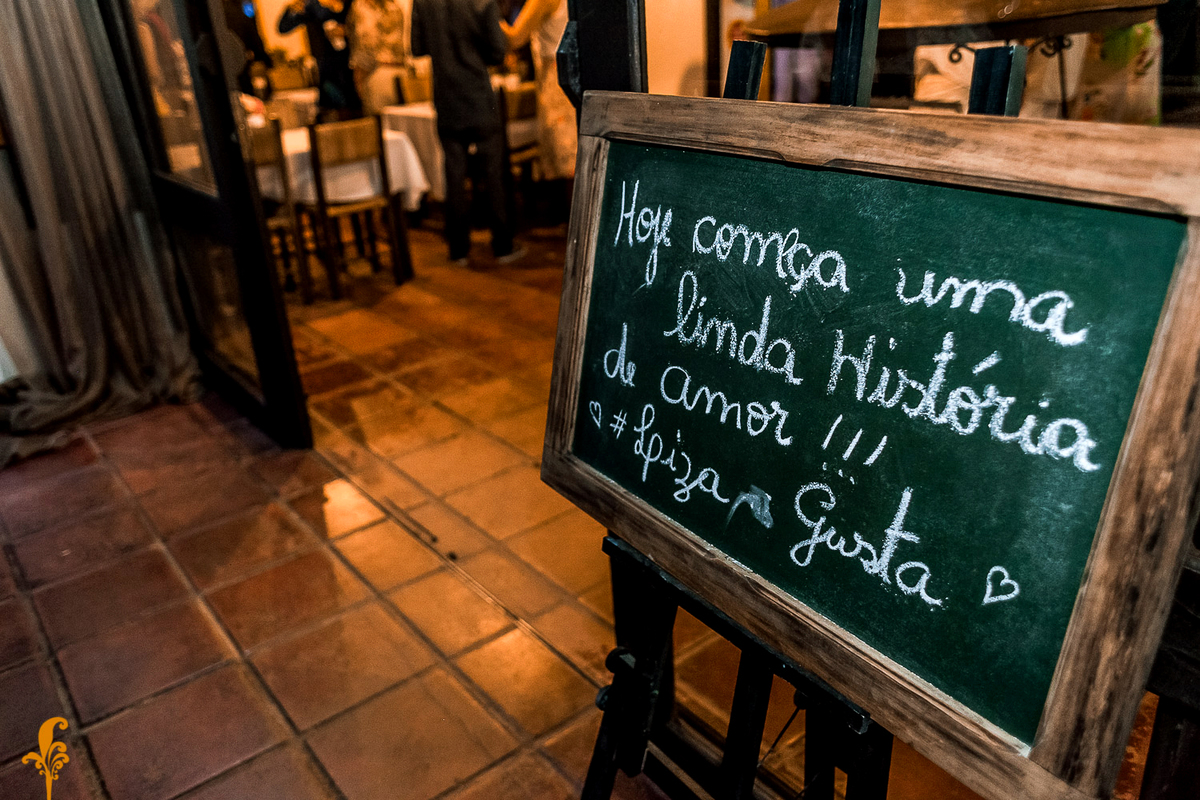 Hoje começa uma
linda História
de amor !!!
♡ #Lpiza Gusta ♡